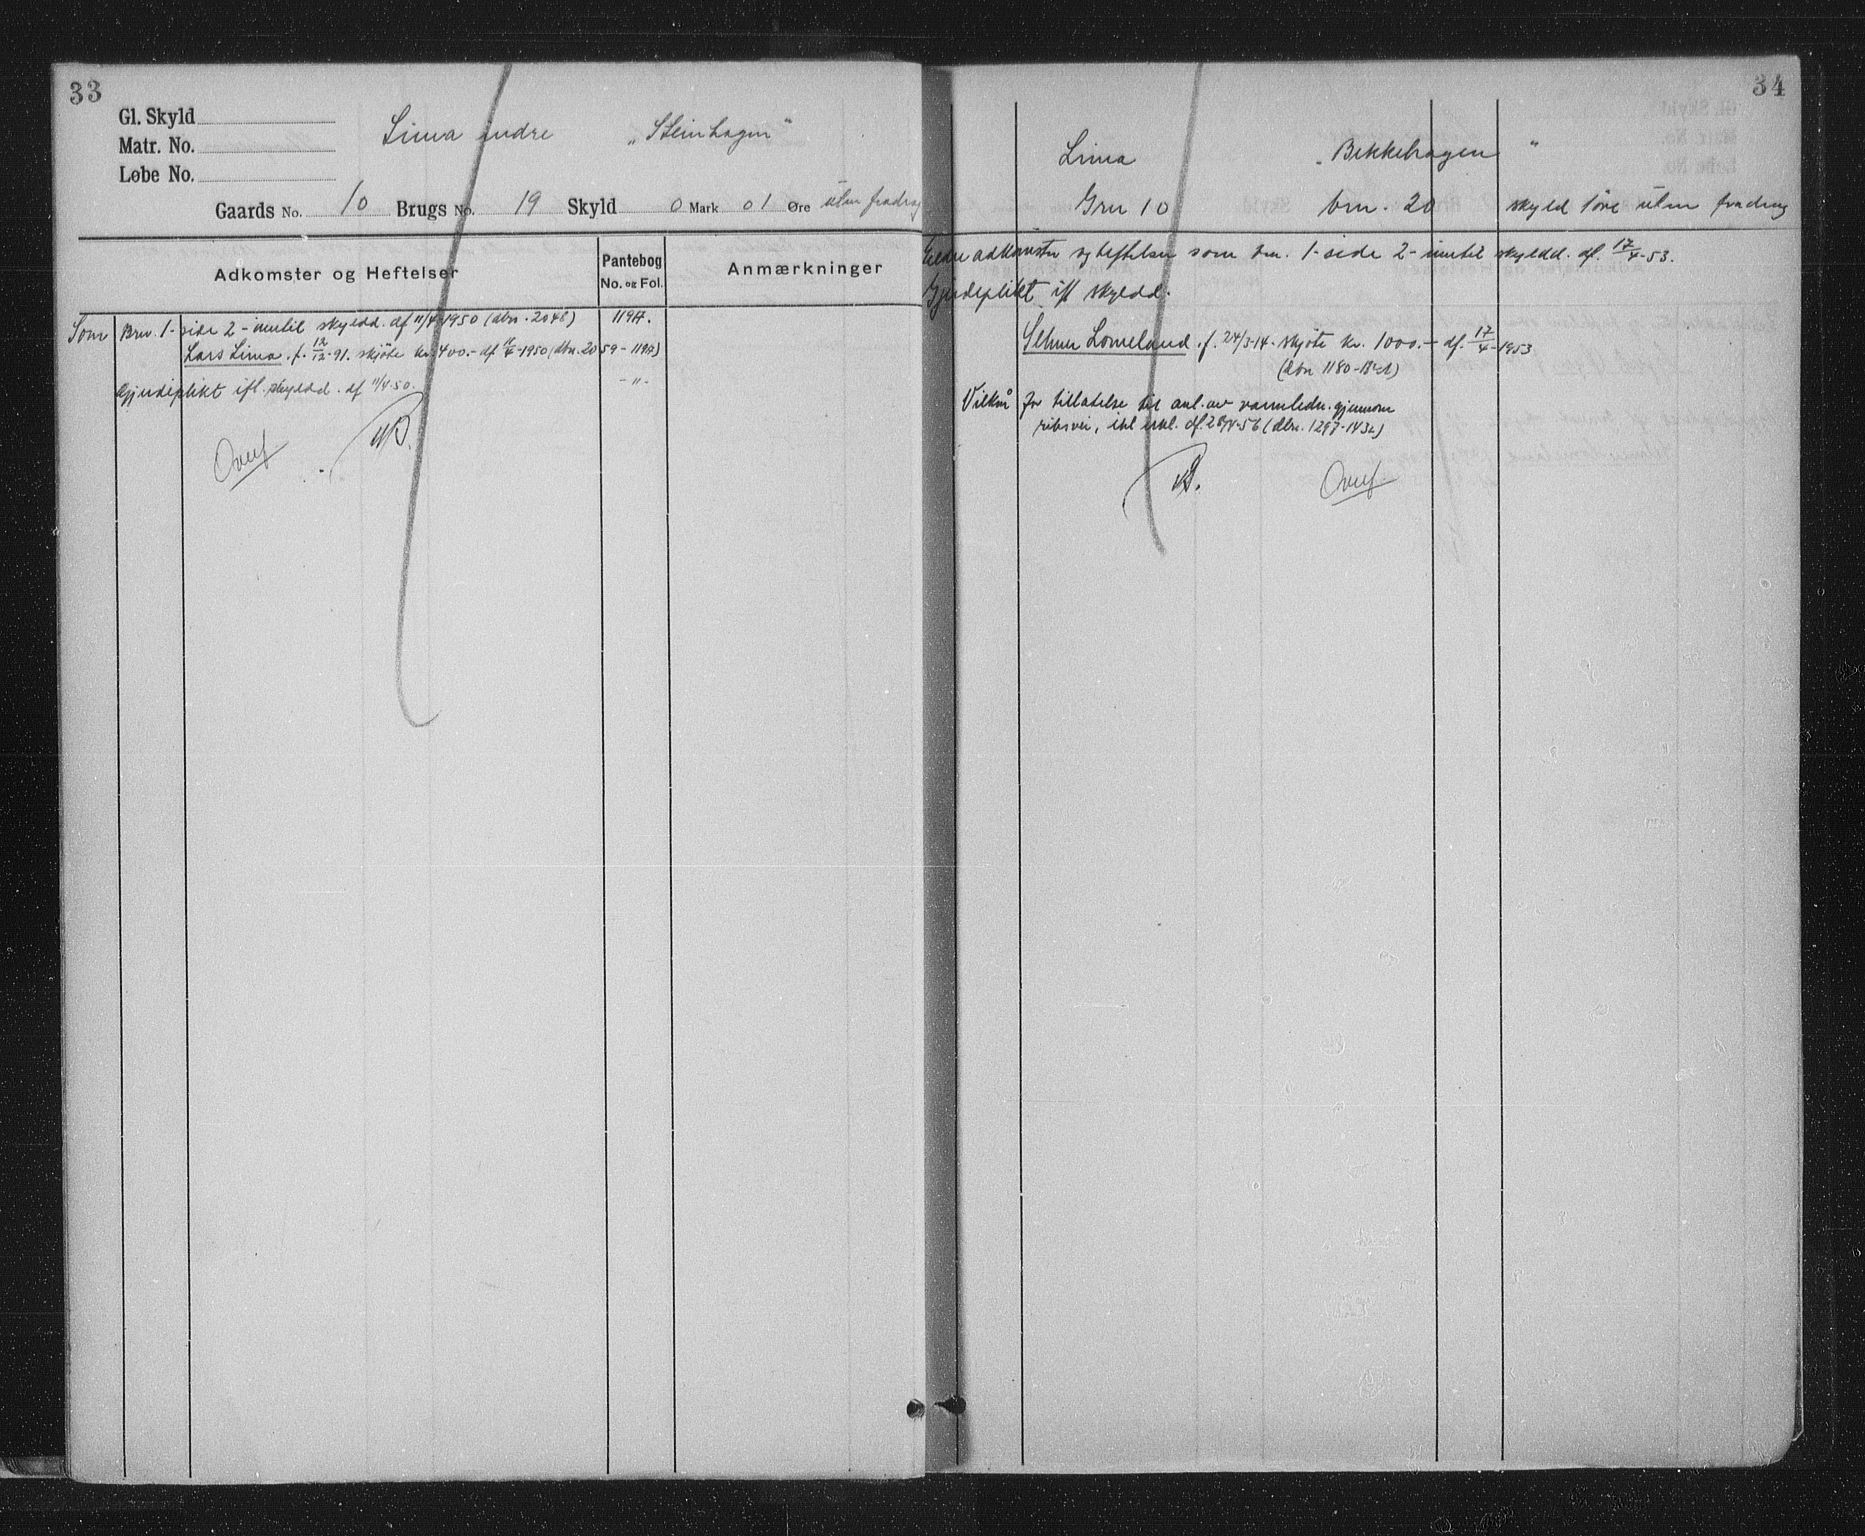 33
Gl. Skyld
Matr. No.
Løbe No.
Lima indre „Steinhagen"
Gaards No. 10 Brugs No. 19 Skyld 0 Mark 01 Øre uten fradrag
Adkomster og Heftelser
Pantebog
No. og Fol.
Anmærkninger
Som Brn. 1-side 2-inntil skyldd. df 11/4-1950 (dbn. 2048) 119A.
Lars Lima f. 12/12-91. skjøte kr. 400.- df 11/4-1950 (dbn. 2059-119A)
Gjerdeplikt ifl. skyldd. df 11/4 50. -"-
Overf
34
Lima „Bekkehagen"
Grn 10 brn. 20 skyld 1 øre uten fradrag
Eldre adkomster og heftelser som brn. 1-side 2-inntil skyldd. df. 17/4-53.
Gjerdeplikt ifl skyldd.
Selmer Lomeland f. 24/3-14. skjøte kr. 1000.- df. 17/4-1953
(dbn 1180-
Vilkår for tillatelse til anl. av vannledn. gjennom
riksvei, ifl erkl. df. 28/4-56 (dbn. 1297-143
Overf